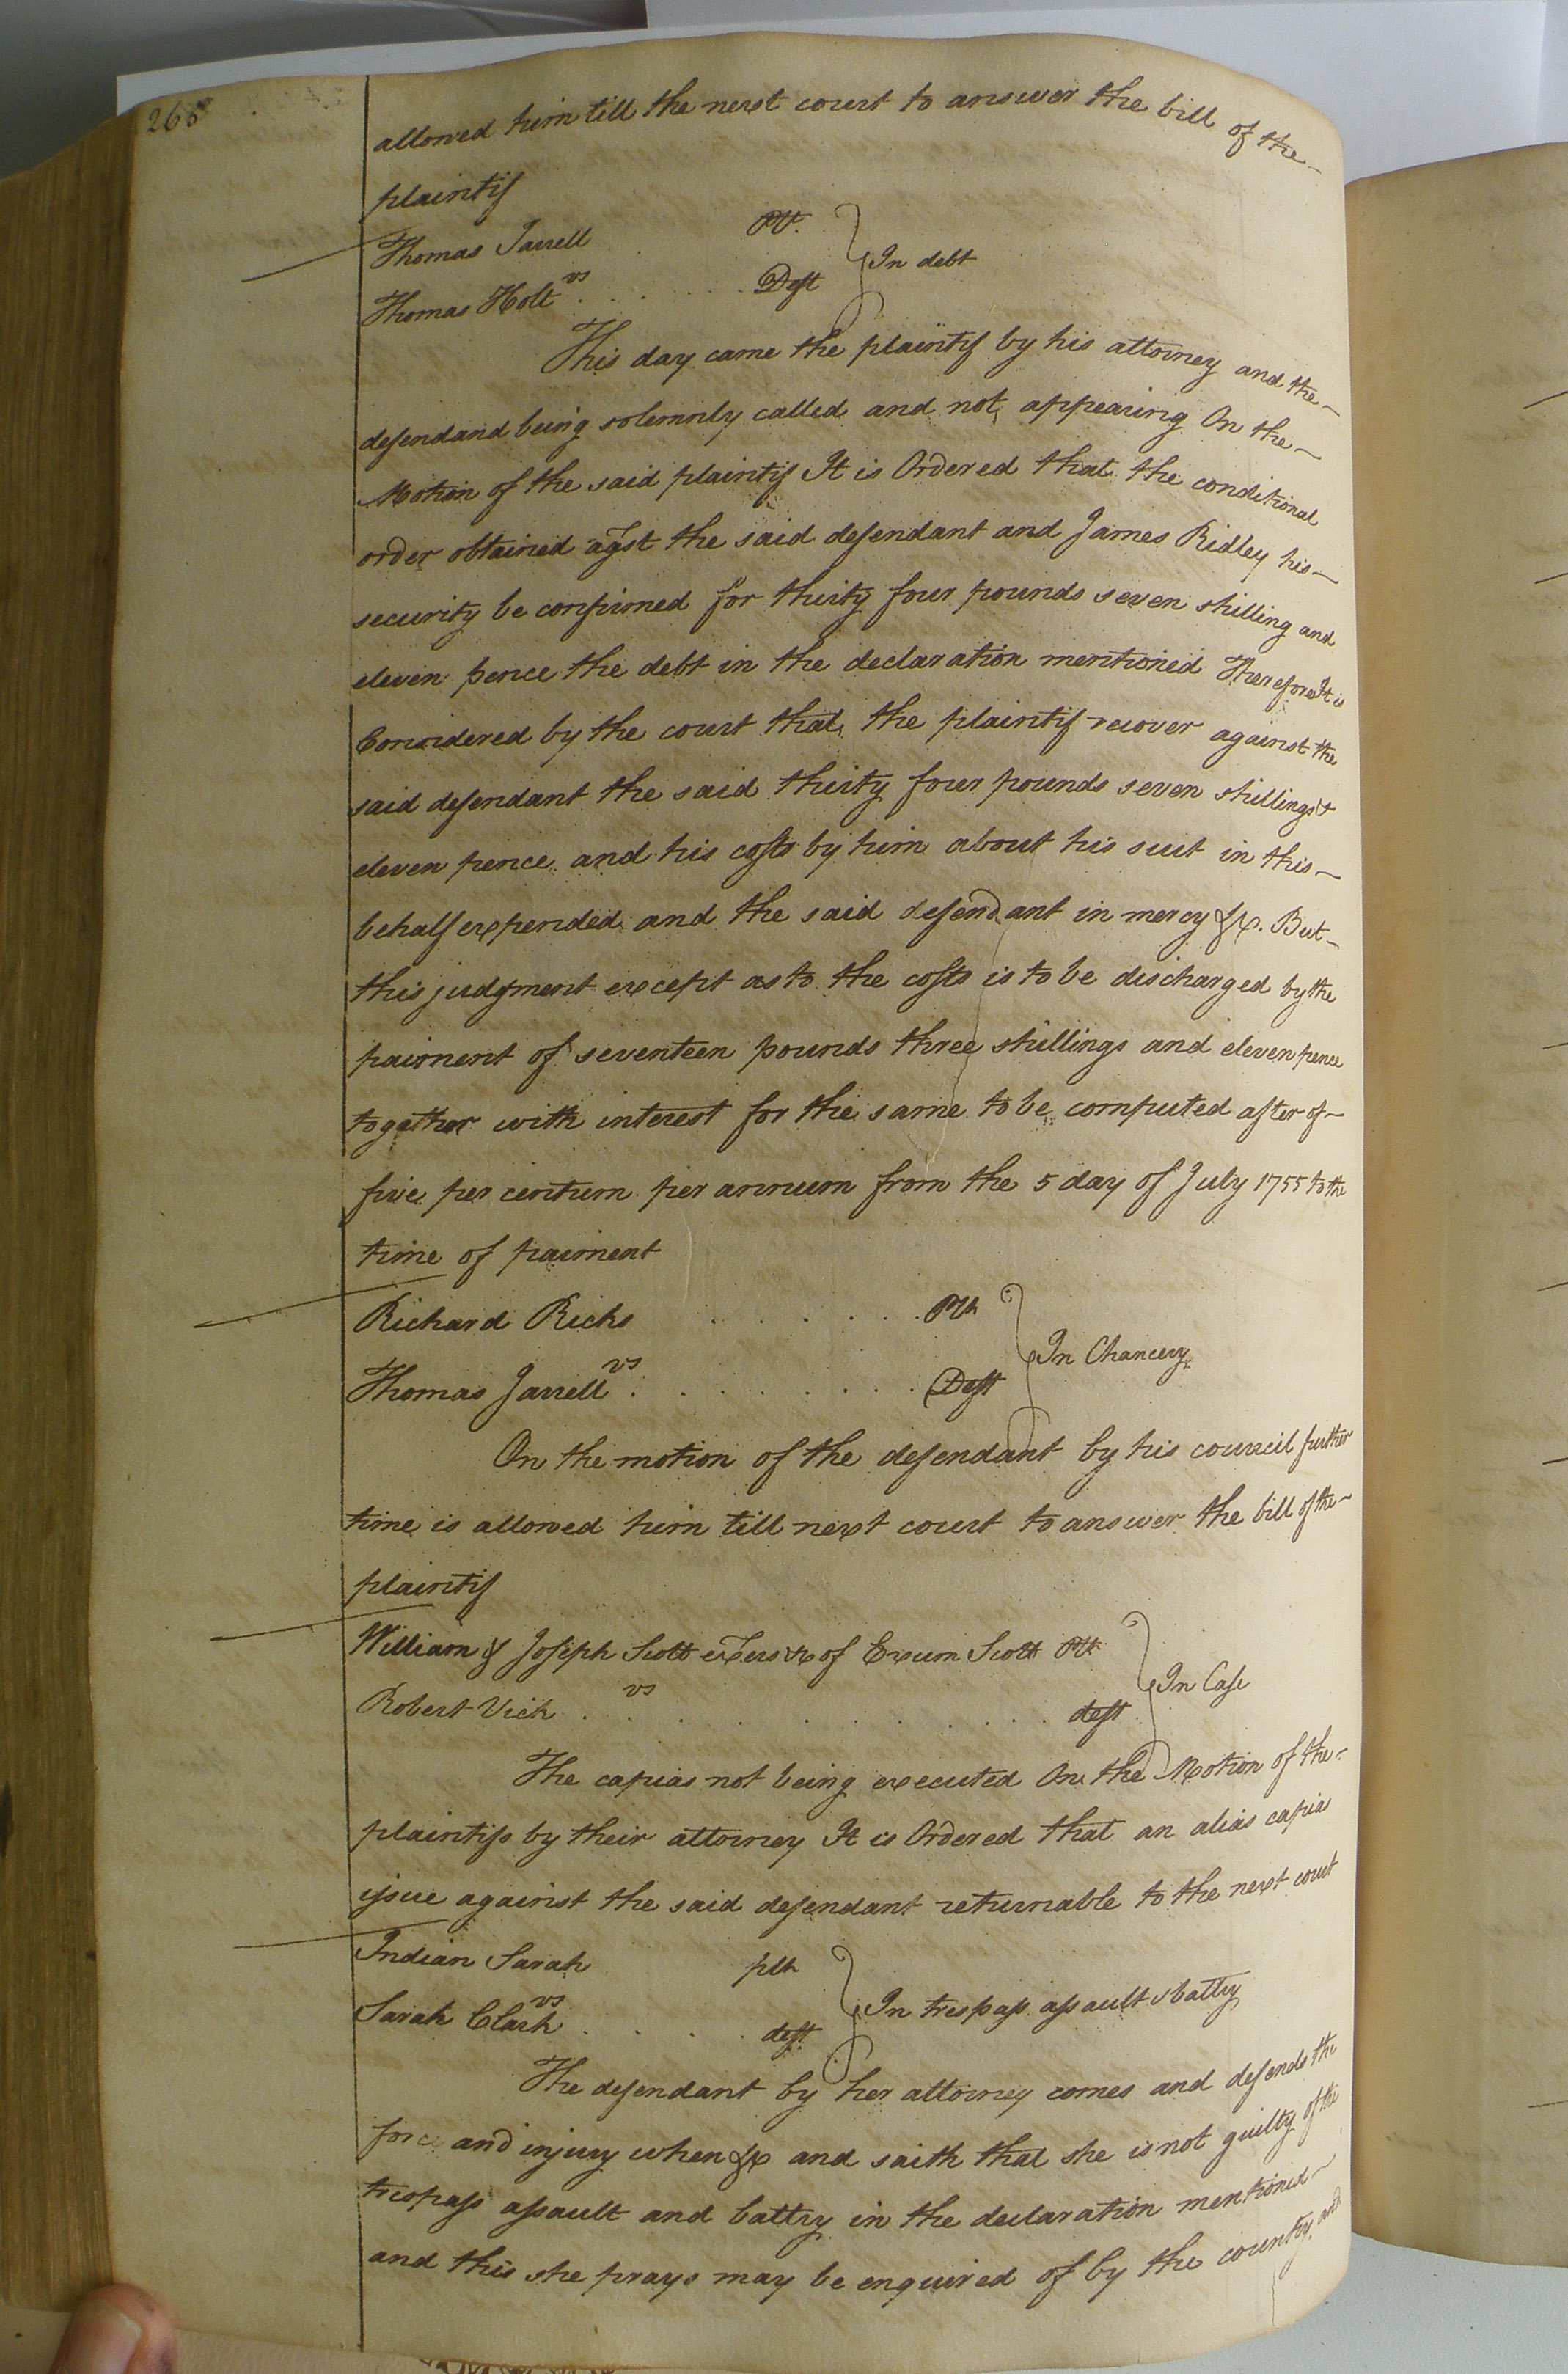 265
allowed him till the next court to answer the bill of the
plaintif
Thomas Jarrell Plt.
vs
Thomas Holt . . . . . . Deft
In debt
This day came the plaintif by his attorney and the
defendand being solemnly called and not appearing On the
Motion of the said plaintif It is Ordered that the conditional
order obtained agst the said defendant and James Ridley his
security be confirmed for thirty four pounds seven shilling and
eleven pence the debt in the declaration mentioned Therefore It is
Considered by the court that the plaintif recover against the
said defendant the said thirty four pounds seven shillings &
eleven pence and his costs by him about his suit in this
behalf expended and the said defendant in mercy &c. But
this judgment except as to the costs is to be discharged by the
paiment of seventeen pounds three shillings and eleven pence
together with interest for the same to be computed after of
five per centum per annum from the 5 day of July 1755 to the
time of paiment
Richard Ricks . . . . . . Plt
vs
Thomas Jarrell . . . . . . . . Deft
In Chancery
On the motion of the defendant by his council further
time is allowed him till next court to answer the bill of the
plaintif
William & Joseph Scott exers &c of Exum Scott Plt
vs
Robert Vick . . . . . . . . . . deft
In Case
The capias not being executed On the Motion of the
plaintifs by their attorney It is Ordered that an alias capias
issue against the said defendant returnable to the next court
Indian Sarah plt
vs
Sarah Clark . . . . deft
In trespass assault & battry
The defendant by her attorney comes and defends the
force and injury when &c and saith that she is not guilty of the
trespass assault and battry in the declaration mentioned
and this she prays may be enquired of by the country and